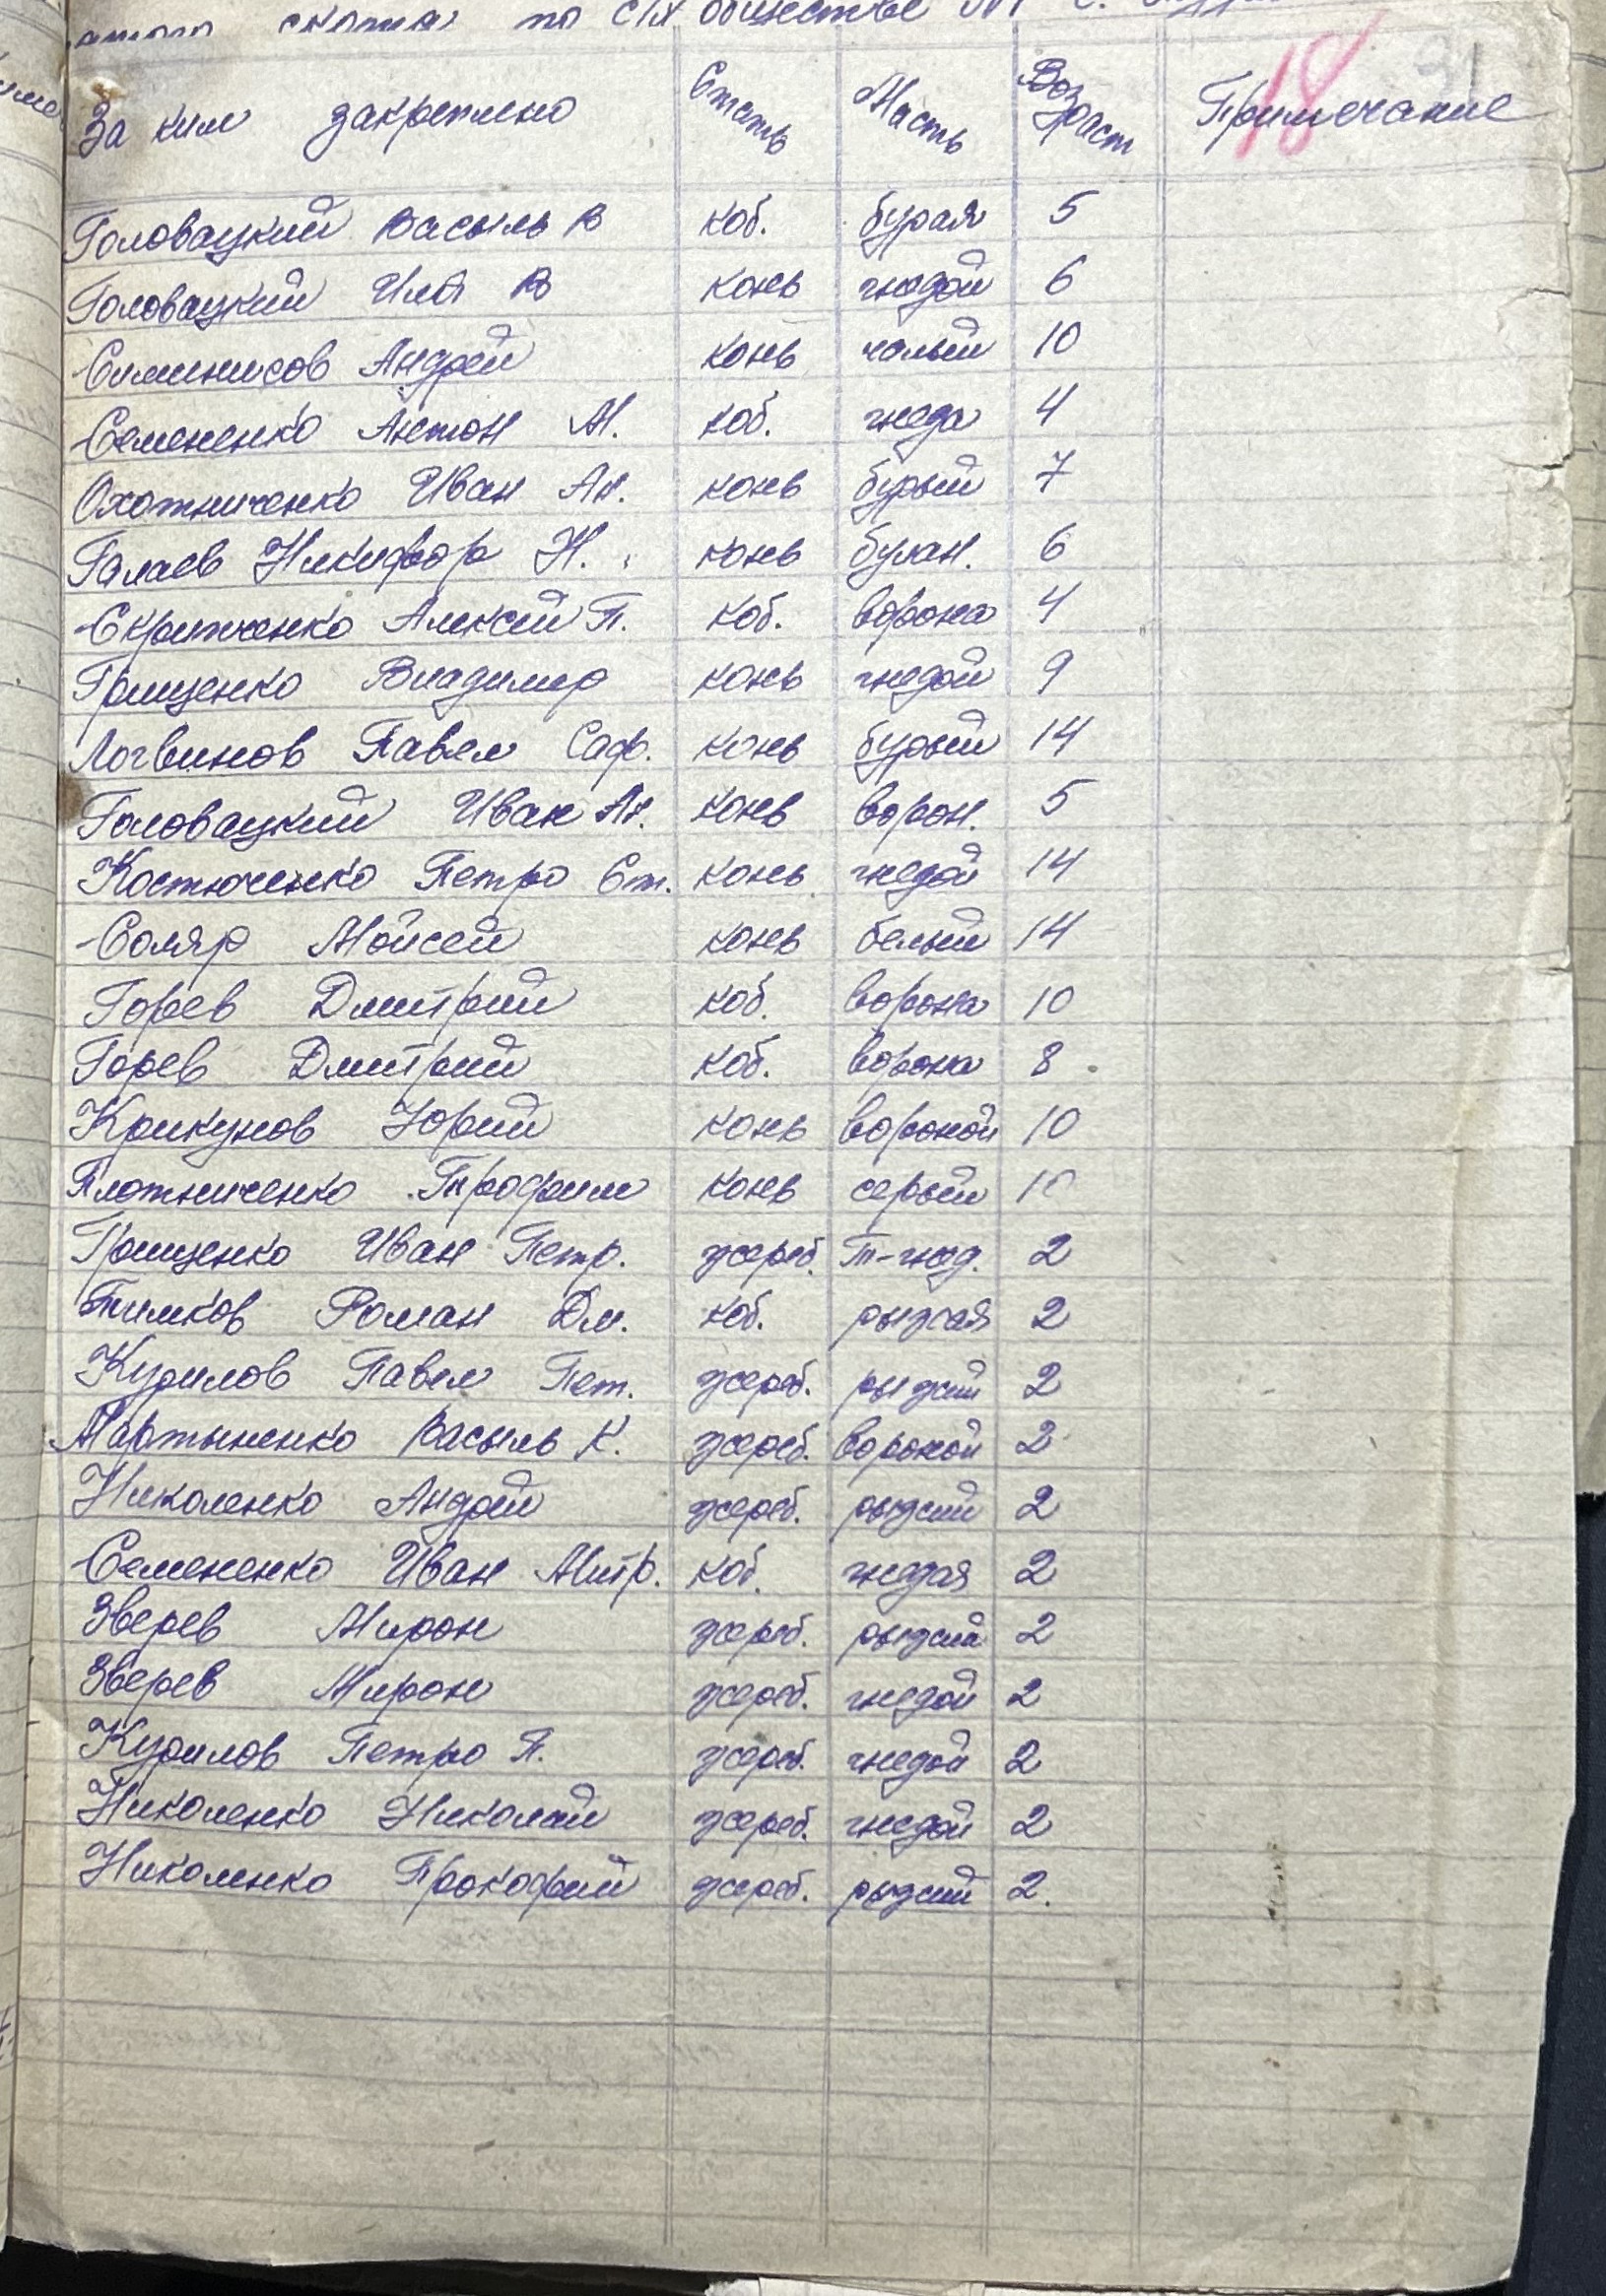 скота по с/х обществе
18 31
За ким закреплено Стать Масть Возраст Примечание
Головацкий Василь В коб. бурая 5
Головацкий Илья В конь гнедой 6
Андрей конь чалый 10
Семененко Антон М. коб. гнеда 4
Охотниченко Иван Ан. конь бурый 7
Галаев Никифор Н. конь булан. 6
Скрипченко Алексей П. коб. ворона 4
Грищенко Владимир конь гнедой 9
Логвинов Павел Саф. конь бурый 14
Головацкий Иван Ан. конь ворон. 5
Костюченко Петро Ст. конь гнедой 14
Соляр Мойсей конь белый 14
Горев Дмитрий коб. ворона 10
Горев Дмитрий коб. ворона 8
Крикунов Юрий конь вороной 10
Плотниченко Трофим конь серый 10
Грищенко Иван Петр. жереб. т-гнед. 2
Тимков Роман Дм. коб. рыжая 2
Курилов Павел Пет. жереб. рыжий 2
Мартыненко Василь К. жереб. вороной 2
Николенко Андрей жереб. рыжий 2
Семененко Иван Митр. коб. гнедая 2
Зверев Мирон жереб. рыжий 2
Зверев Мирон жереб. гнедой 2
Курилов Петро П. жереб. гнедой 2
Николенко Николай жереб. гнедой 2
Николенко Прокофий жереб. рыжий 2.